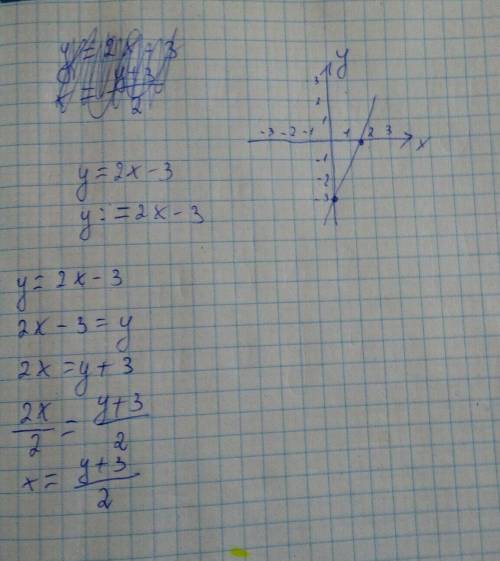 y = 2x - 3
x = y+3/2
y = 2x - 3
y: = 2x - 3
y = 2x - 3
2x - 3 = y
2x = y + 3
2x/2 = y+3/2
x = y+3/2
y
3
2
1
-3 -2 -1 1 2 3 x
-1
-2
-3